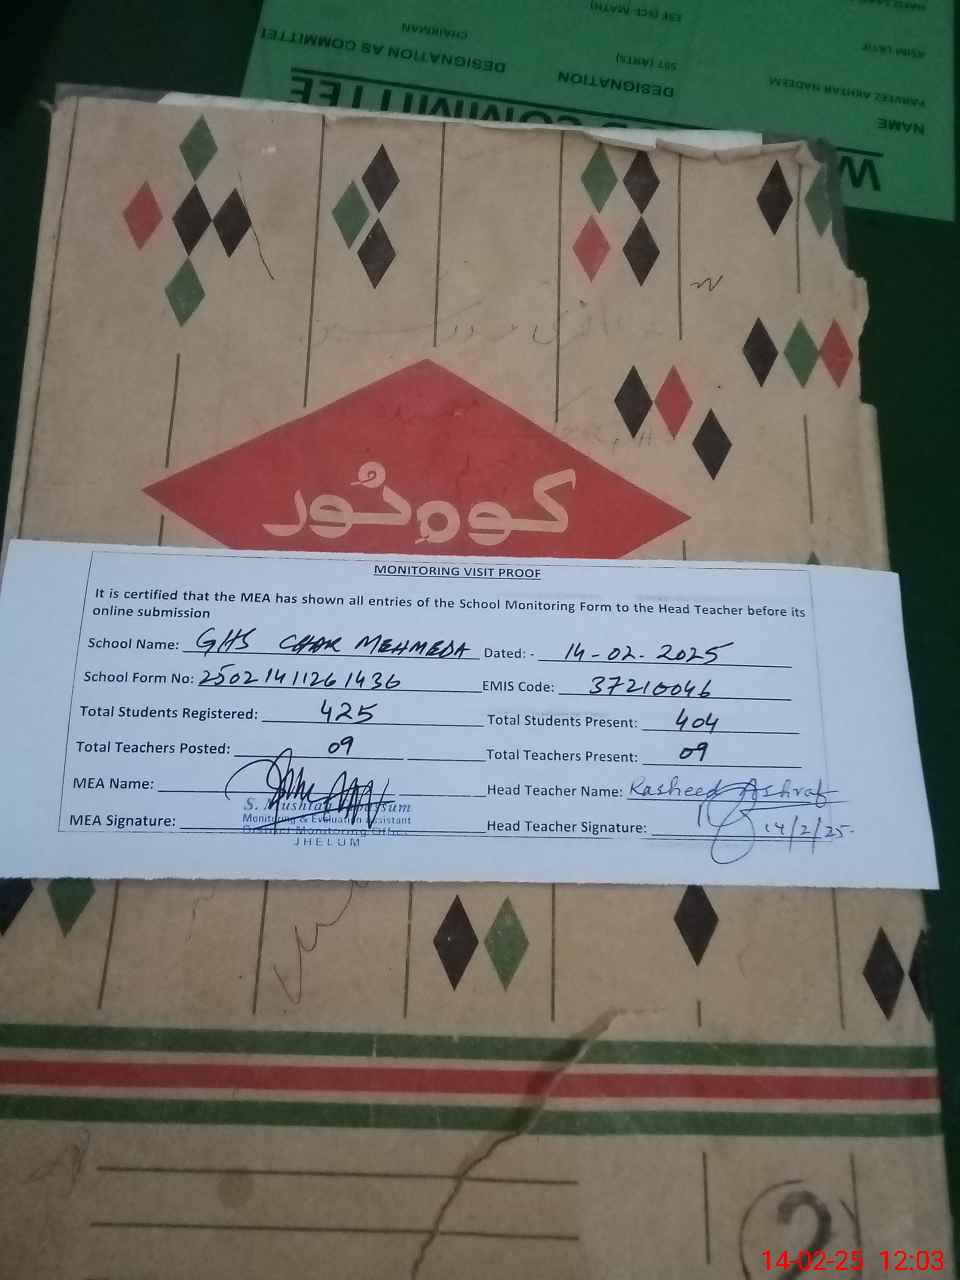 WAR COMMITTEE
NAME DESIGNATION DESIGNATION AS COMMITTEE
PARVEEZ AKHTAR NADEEM SST (ARTS) CHAIRMAN
ASIM LATIF ESE (SCI-MATH)
کوہ نور
MONITORING VISIT PROOF
It is certified that the MEA has shown all entries of the School Monitoring Form to the Head Teacher before its
online submission
School Name: GHS CHAK MEHMEDA Dated: - 14-02-2025
School Form No: 25021411261436 EMIS Code: 37210046
Total Students Registered: 425 Total Students Present: 404
Total Teachers Posted: 09 Total Teachers Present: 09
MEA Name: Head Teacher Name: Rasheed Ashraf
S. Mushtaq
Monitoring & Evaluation Assistant
MEA Signature: Head Teacher Signature: 14/2/25.
District Monitoring Office
JHELUM
2
14-02-25 12:03